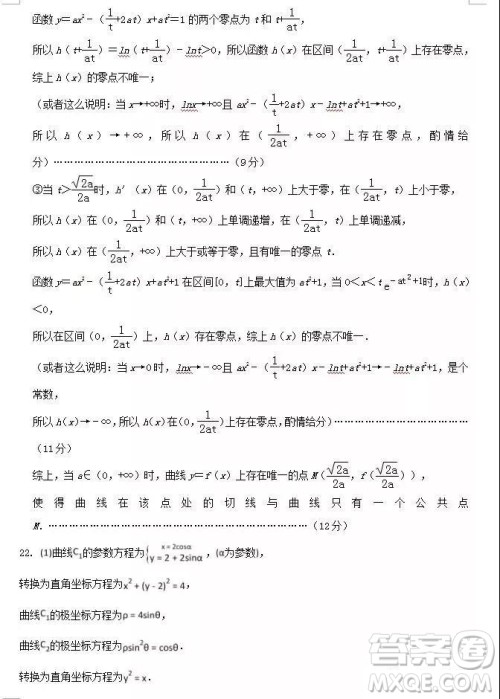 函数 y=ax²-（1/t+2at）x+at²=1 的两个零点为 t 和 t+1/at，
所以 h（t+1/at）=ln（t+1/at）-lnt>0，所以函数 h（x）在区间（1/2at，t+1/at）上存在零点，
综上 h（x）的零点不唯一；
（或者这么说明：当 x→+∞时，lnx→+∞且 ax²-（1/t+2at）x-lnt+at²+1→+∞，
所以 h（x）→+∞，所以 h（x）在（1/2at，+∞）上存在零点，酌情给
分）……………………………………………（9分）
③当 t>√2a/2a时，h′（x）在（0，1/2at）和（t，+∞）上大于零，在（1/2at，t）上小于零，
所以 h（x）在（0，1/2at）和（t，+∞）上单调递增，在（1/2at，t）上单调递减，
所以 h（x）在（1/2at，+∞）上大于或等于零，且有唯一的零点 t．
函数 y=ax²-（1/t+2at）x+at²+1 在区间[0，t]上最大值为 at²+1，当 0＜x＜t e^-at²+1时，h（x）
＜0，
所以在区间（0，1/2at）上，h（x）存在零点，综上 h（x）的零点不唯一．
（或者这么说明：当 x→0 时，lnx→-∞且 ax²-（1/t+2at）x-lnt+at²+1→-lnt+at²+1，是个
常数，
所以 h（x）→-∞，所以 h（x）在（0，1/2at）上存在零点，酌情给分）…………………………………
（11分）
综上，当 a∈（0，+∞）时，曲线 y=f（x）上存在唯一的点 M（√2a/2a，f（√2a/2a）），
使得曲线在该点处的切线与曲线只有一个公共点
M．……………………………………………………………（12分）
22．(1)曲线C₁的参数方程为{x=2cosα
y=2+2sinα，(α为参数)，
转换为直角坐标方程为x²+(y-2)²=4，
曲线C₁的极坐标方程为ρ=4sinθ，
曲线C₂的极坐标方程为ρsin²θ=cosθ．
转换为直角坐标方程为y²=x．